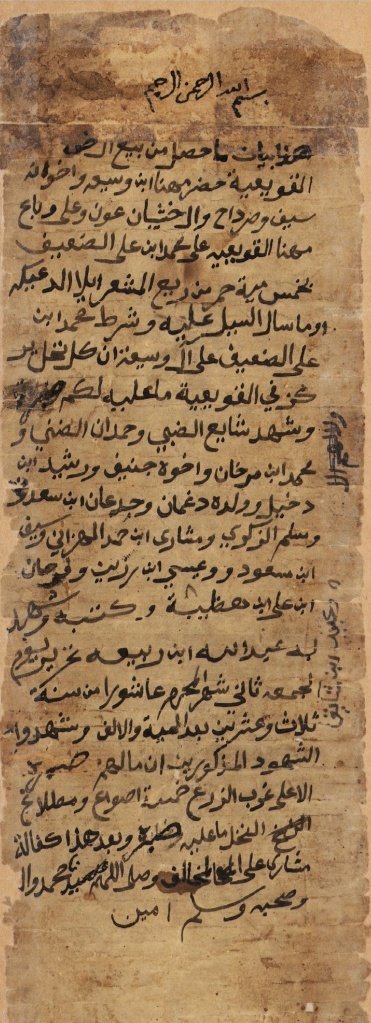 بسم الله الرحمن الرحيم
هذا بيان ما حصل من بيع ارض
القويعية حضر مهنا ابن وسيعه واخوانه
سيف ومرداح والدخيتان عون وعلي وباع
مهنا القويعيه على محمد ابن علي الضعيف
بخمس مية حمر من ريع المشعر ايلا الدعيكه
او ما سال السيل عليه وشرط محمد ابن
علي الضعيف على ال وسيعة ان كل نخل ير
كز في القويعية ما عليه لكم صبرة
وشهد شايع الضبي وحمدان الضني و
محمد ابن مرخان واخوه جنيف ورشيد ابن
دخيل وولده دغمان وجدعان ابن سعدون
وسلم الزكوي ومشاري ابن حمد الهزاني وسيف
ابن سعود وعيسي ابن رزين وفرحان
ابن علي ابن هظيبة وكتبه وشهد
به عبد الله ابن ربيعه تحرير يوم
الجمعه ثاني شهر المحرم عاشورا من سنة
ثلاث وعشرين بعد المية والالف وشهدوا
الشهود المذكورين ان مالهم صبره
الا على غرب الزرع خمسة اصواع ومطلاع
النخل ما عليه صبرة وبعد هذا كفالة
مشاري على المخالف وصلى الله على سيدنا محمد وال
وصحبه وسلم امين